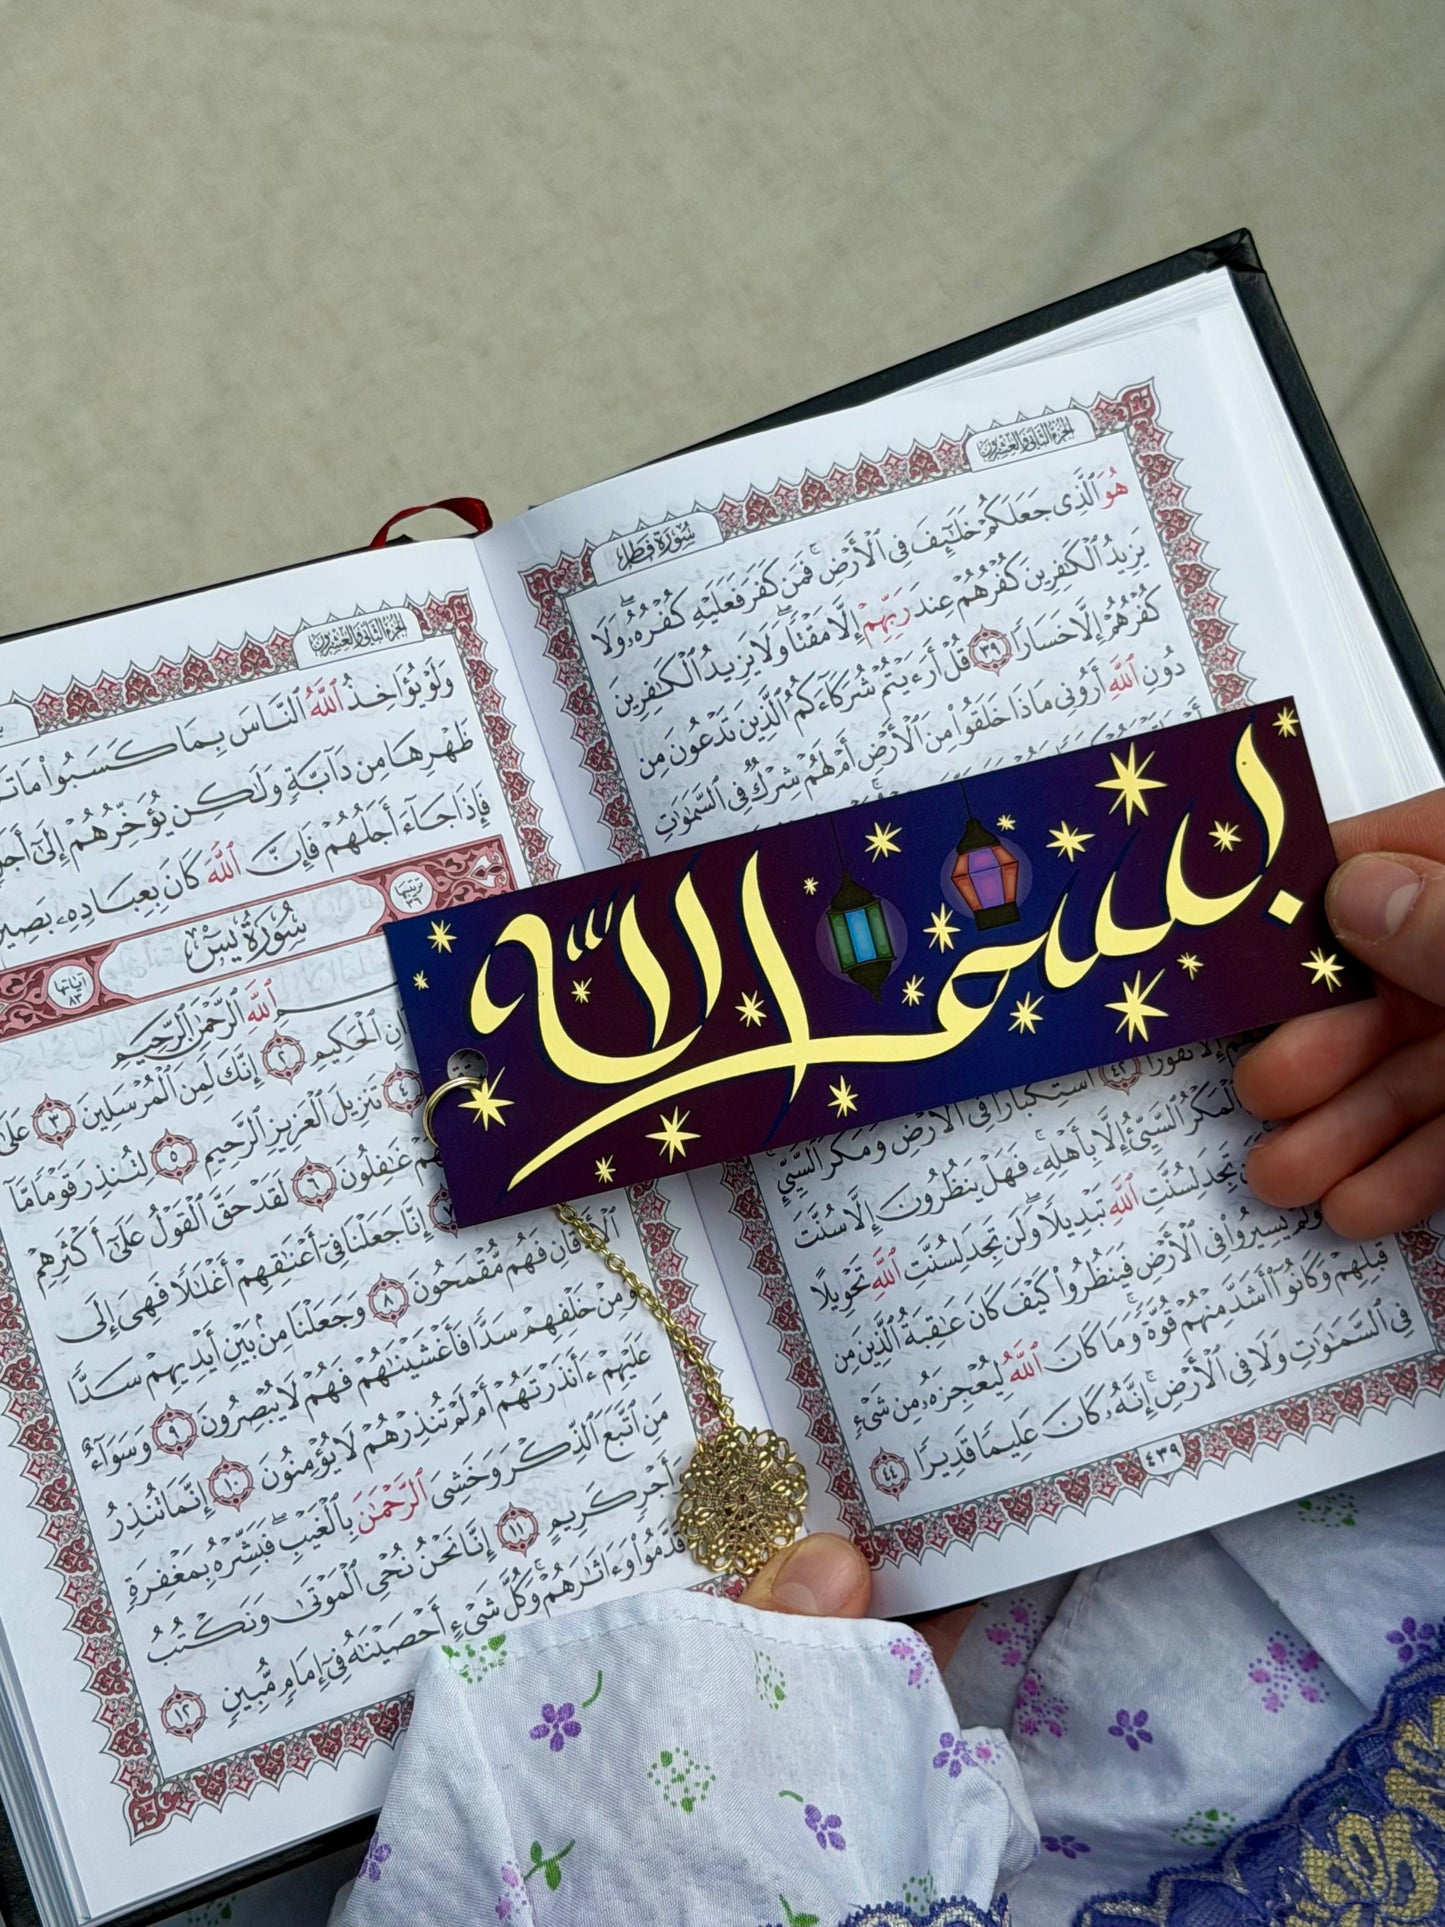 الجزء الثاني والعشرون
سورة فاطر
هُوَ ٱلَّذِى جَعَلَكُمْ خَلَٰٓئِفَ فِى ٱلْأَرْضِ ۚ فَمَن كَفَرَ فَعَلَيْهِ كُفْرُهُۥ ۖ وَلَا
يَزِيدُ ٱلْكَٰفِرِينَ كُفْرُهُمْ عِندَ رَبِّهِمْ إِلَّا مَقْتًا ۖ وَلَا يَزِيدُ ٱلْكَٰفِرِينَ
كُفْرُهُمْ إِلَّا خَسَارًا ٣٩ قُلْ أَرَءَيْتُمْ شُرَكَآءَكُمُ ٱلَّذِينَ تَدْعُونَ مِن
دُونِ ٱللَّهِ أَرُونِى مَاذَا خَلَقُوا۟ مِنَ ٱلْأَرْضِ أَمْ لَهُمْ شِرْكٌ فِى ٱلسَّمَٰوَٰتِ
بسم الله
نُفُورًا ٤٢ ٱسْتِكْبَارًا فِى ٱلْأَرْضِ وَمَكْرَ ٱلسَّيِّئِ
ٱلْمَكْرُ ٱلسَّيِّئُ إِلَّا بِأَهْلِهِۦ ۚ فَهَلْ يَنظُرُونَ إِلَّا سُنَّتَ
تَجِدَ لِسُنَّتِ ٱللَّهِ تَبْدِيلًا ۖ وَلَن تَجِدَ لِسُنَّتِ ٱللَّهِ تَحْوِيلًا
يَسِيرُوا۟ فِى ٱلْأَرْضِ فَيَنظُرُوا۟ كَيْفَ كَانَ عَٰقِبَةُ ٱلَّذِينَ مِن
قَبْلِهِمْ وَكَانُوٓا۟ أَشَدَّ مِنْهُمْ قُوَّةً ۚ وَمَا كَانَ ٱللَّهُ لِيُعْجِزَهُۥ مِن شَىْءٍ
فِى ٱلسَّمَٰوَٰتِ وَلَا فِى ٱلْأَرْضِ ۚ إِنَّهُۥ كَانَ عَلِيمًا قَدِيرًا ٤٤
٤٣٩
الجزء الثاني والعشرون
وَلَوْ يُؤَاخِذُ ٱللَّهُ ٱلنَّاسَ بِمَا كَسَبُوا۟ مَا
ظَهْرِهَا مِن دَآبَّةٍ وَلَٰكِن يُؤَخِّرُهُمْ إِلَىٰٓ
فَإِذَا جَآءَ أَجَلُهُمْ فَإِنَّ ٱللَّهَ كَانَ بِعِبَادِهِۦ
ترتيبها ٣٦
سورة يس
آياتها ٨٣
ٱللَّهِ ٱلرَّحْمَٰنِ ٱلرَّحِيمِ
ٱلْحَكِيمِ ٢ إِنَّكَ لَمِنَ ٱلْمُرْسَلِينَ ٣ عَلَىٰ
٤ تَنزِيلَ ٱلْعَزِيزِ ٱلرَّحِيمِ ٥ لِتُنذِرَ قَوْمًا مَّآ
غَٰفِلُونَ ٦ لَقَدْ حَقَّ ٱلْقَوْلُ عَلَىٰٓ أَكْثَرِهِمْ
٧ إِنَّا جَعَلْنَا فِىٓ أَعْنَٰقِهِمْ أَغْلَٰلًا فَهِىَ إِلَى
ٱلْأَذْقَانِ فَهُم مُّقْمَحُونَ ٨ وَجَعَلْنَا مِنۢ بَيْنِ أَيْدِيهِمْ سَدًّا
وَمِنْ خَلْفِهِمْ سَدًّا فَأَغْشَيْنَٰهُمْ فَهُمْ لَا يُبْصِرُونَ ٩ وَسَوَآءٌ
عَلَيْهِمْ ءَأَنذَرْتَهُمْ أَمْ لَمْ تُنذِرْهُمْ لَا يُؤْمِنُونَ ١٠ إِنَّمَا تُنذِرُ
مَنِ ٱتَّبَعَ ٱلذِّكْرَ وَخَشِىَ ٱلرَّحْمَٰنَ بِٱلْغَيْبِ ۖ فَبَشِّرْهُ بِمَغْفِرَةٍ
وَأَجْرٍ كَرِيمٍ ١١ إِنَّا نَحْنُ نُحْىِ ٱلْمَوْتَىٰ وَنَكْتُبُ
قَدَّمُوا۟ وَءَاثَٰرَهُمْ ۚ وَكُلَّ شَىْءٍ أَحْصَيْنَٰهُ فِىٓ إِمَامٍ مُّبِينٍ ١٢